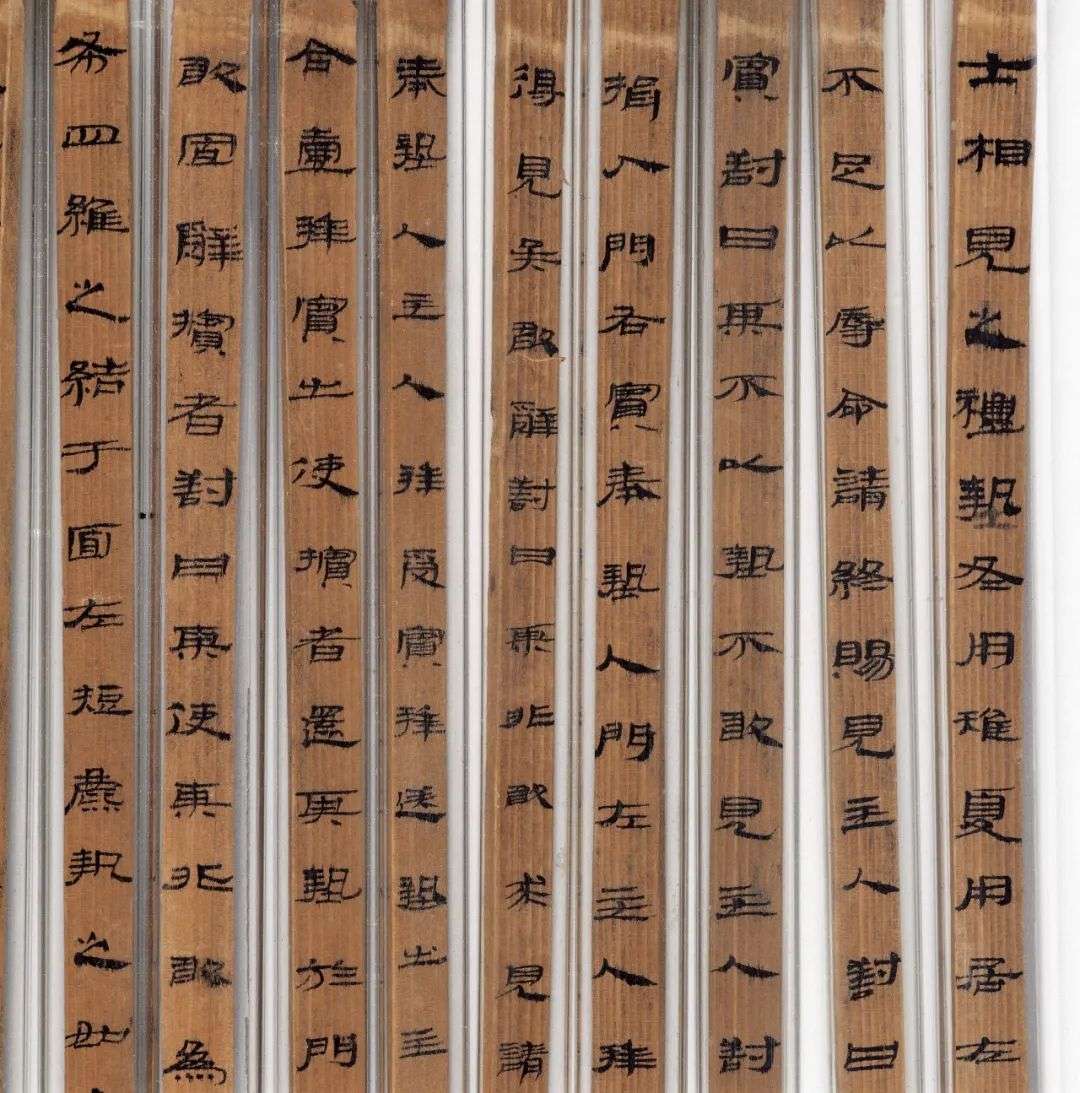 士相見之禮摯冬用雉夏用居左
不足以辱命請終賜見主人對曰
賓對曰某不以摯不敢見主人對
揖入門右賓奉摯入門左主人拜
得見矣敢辭對曰某非敢求見請
奉摯入主人拜受賓拜送摯出主
合壹拜賓出使擯者還其摯於門
敢固辭擯者對曰某使某非敢為
布四維之結于面左短麃執之如